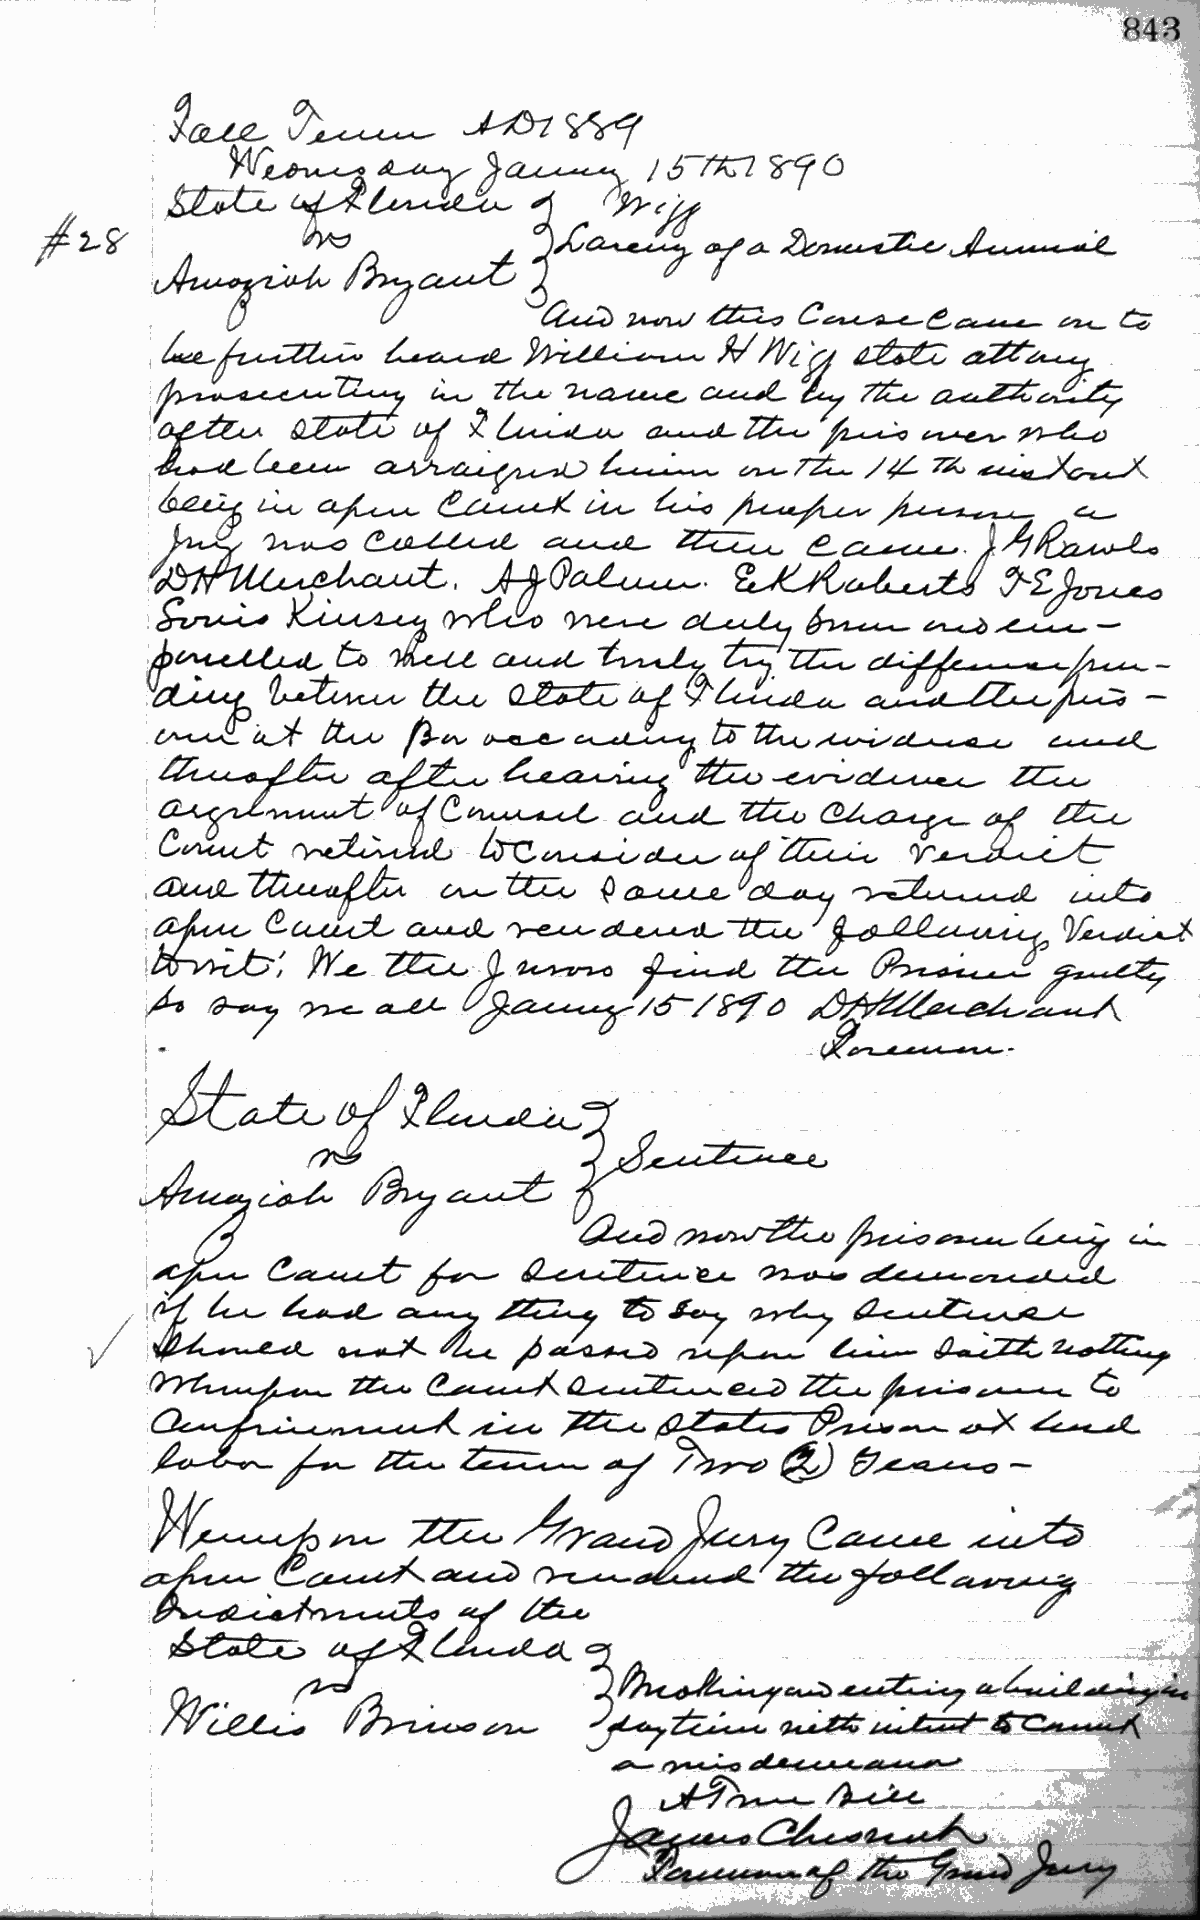 843
Fall Term AD 1889
Wednesday January 15th 1890
State of Florida } Wigg
#28 vs } Larceny of a Domestic Animal
Amaziah Bryant }
And now this Cause came on to
be further heard William H Wigg state attorney
prosecuting in the name and by the authority
of the state of Florida and the prisoner who
had been arraigned him on the 14th instant
being in open Court in his proper person a
Jury was Called and then came J G Rawls
D H Merchant. A J Palmer. E K Roberts F E Jones
Louis Kinsey who were duly sworn and em-
panelled to well and truly try the difference pen-
ding between the State of Florida and the pris-
oner at the Bar according to the evidence and
thereafter after hearing the evidence the
argument of Counsel and the Charge of the
Court retired to Consider of their Verdict
and thereafter on the same day returned into
open Court and rendered the following Verdict
towit: We the Jurors find the Prisoner guilty
so say we all January 15 1890 D H Merchant
Foreman.
State of Florida }
vs } Sentence
Amaziah Bryant }
And now the prisoner being in
open Court for sentence was demanded
if he had any thing to say why sentence
should not be passed upon him saith nothing
Whereupon the Court sentenced the prisoner to
Confinement in the States Prison at hard
labor for the term of Two (2) Years—
Whereupon the Grand Jury Came into
open Court and rendered the following
Indictments of the
State of Florida }
vs } Breaking and entering a building in
Willis Brinson } day time with intent to Commit
a misdemeanor
A True Bill
James Chesnut
Foreman of the Grand Jury